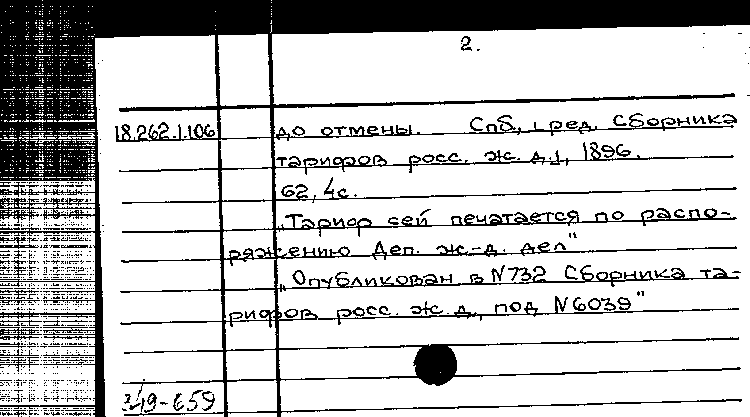 2.
18.262.1.106 до отмены. Спб, [ред. Сборника
тарифов росс. ж. д.], 1896.
62, 4с.
„Тариф сей печатается по распо-
ряжению Деп. ж.-д. дел"
„Опубликован в N732 Сборника та-
рифов росс. ж. д., под N6039"